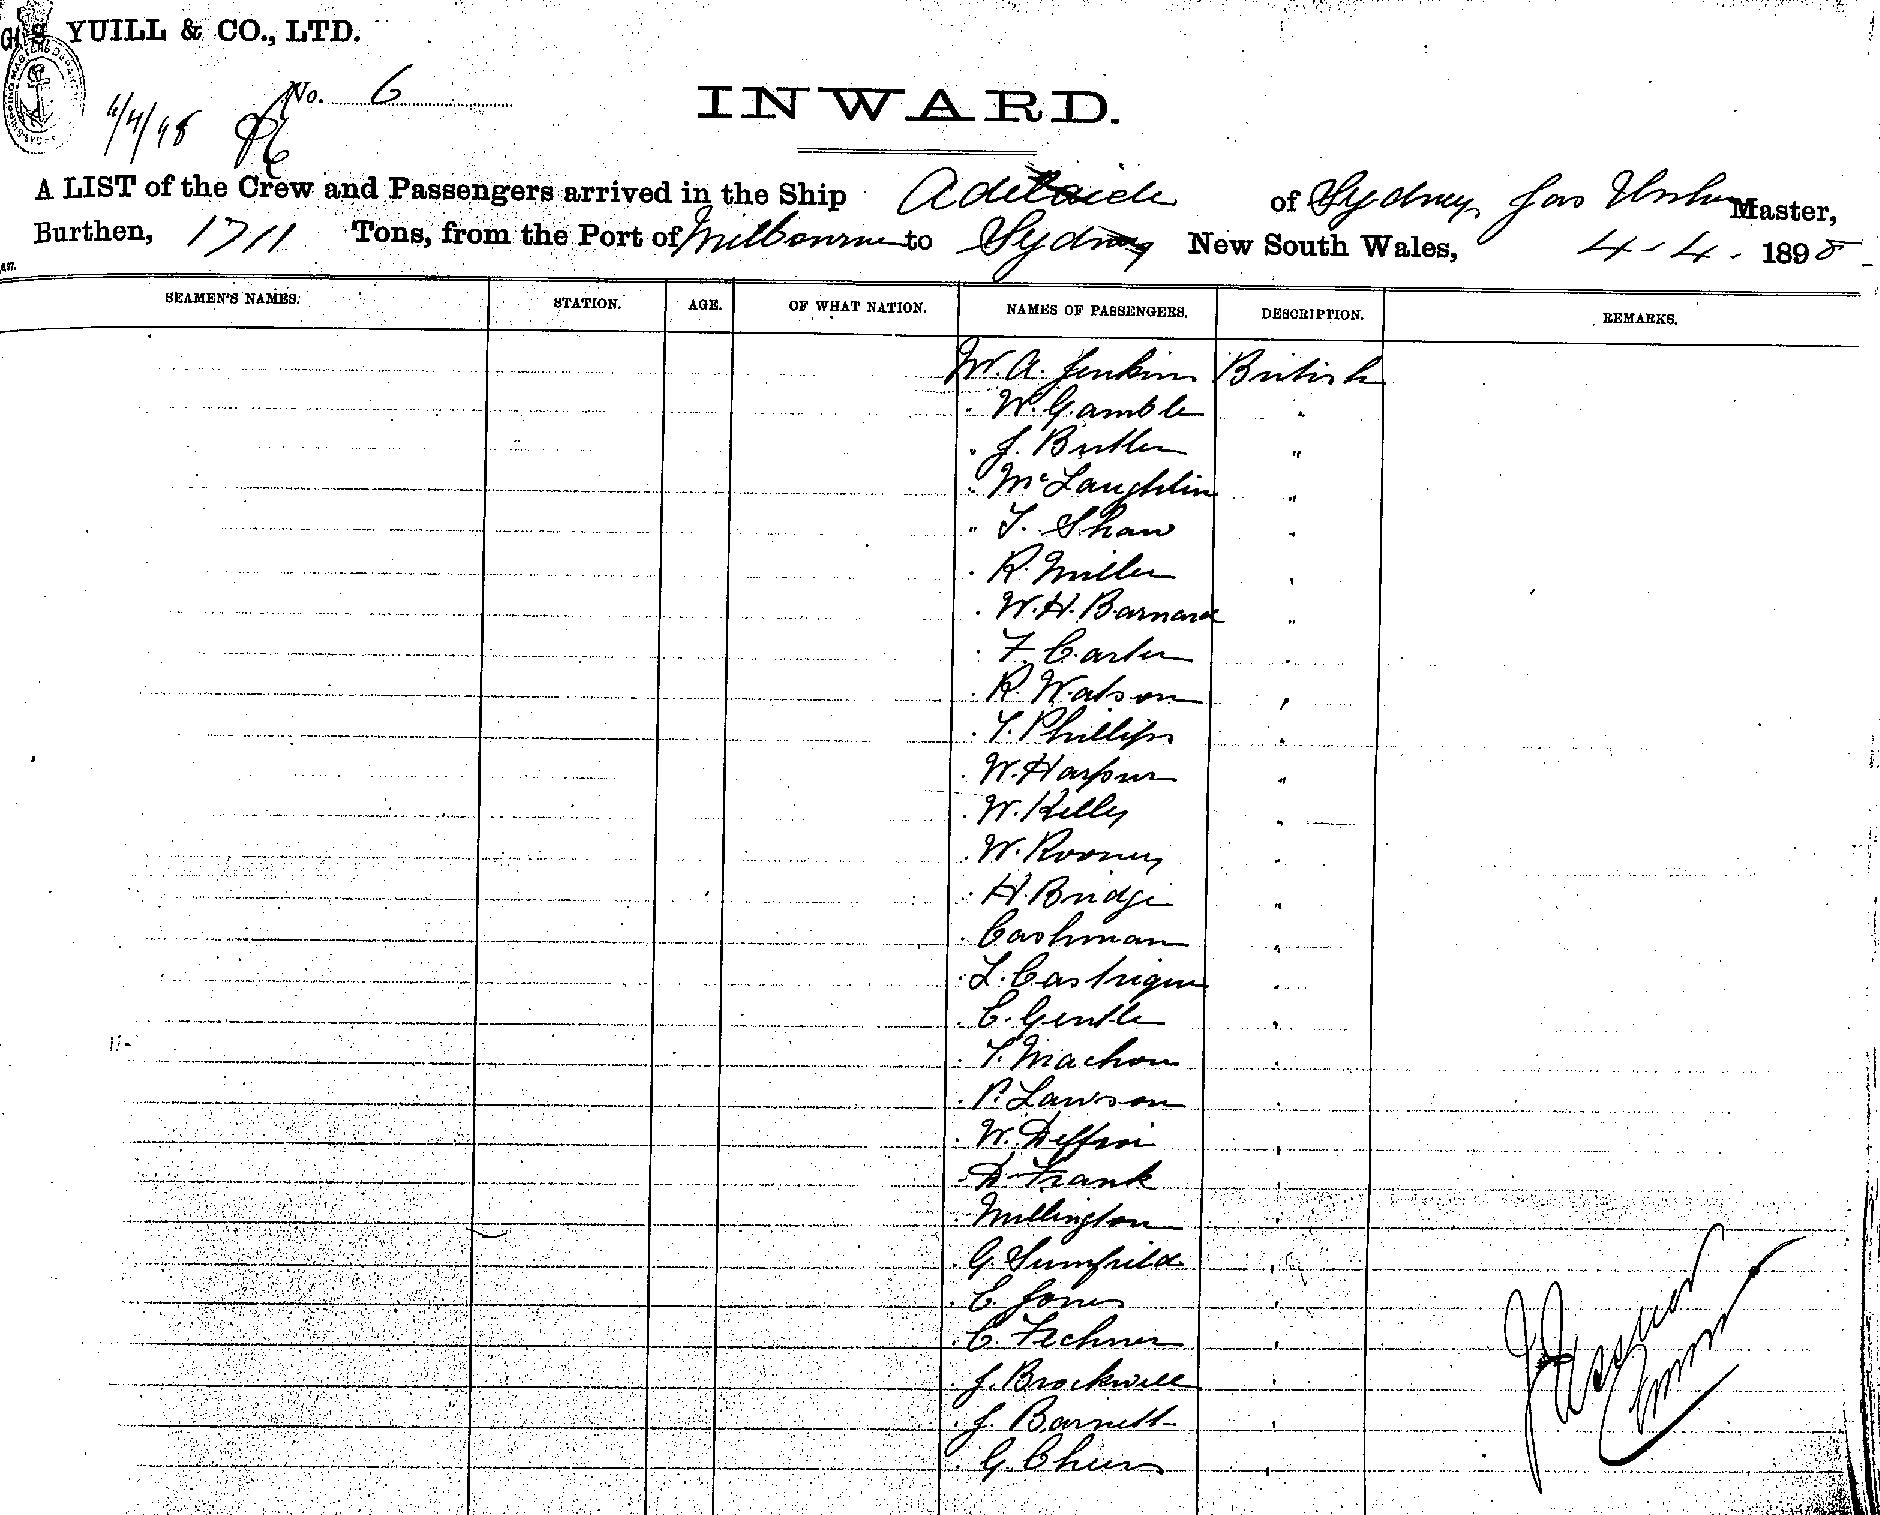 YUILL & CO., LTD.
No. 6
6/4/98
INWARD.
A LIST of the Crew and Passengers arrived in the Ship Adelaide of Sydney, Jas Master,
Burthen, 1711 Tons, from the Port of Melbourne to Sydney New South Wales, 4-4-1898
SEAMEN'S NAMES. STATION. AGE. OF WHAT NATION. NAMES OF PASSENGERS. DESCRIPTION. REMARKS.
W. A. Jenkins British
" W. Gamble "
" J. Butler "
" McLaughlin "
" T. Shaw "
" R. Miller "
" W. H. Barnard "
" F. Carter "
" R. Watson "
" T. Phillips "
" W. Harpur "
" W. Kelly "
" W. Rooney "
" H. Bridge "
" Cashman "
" L. Castrique "
" C. Gentle "
" T. Machon "
" P. Lawson "
" W. "
" D. Frank "
" Millington "
" G. Sumfield "
" C. Jones "
" C. Fechner "
" J. Brockwell "
" J. Barnett "
" G. Cheers "